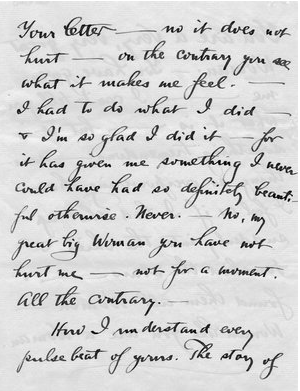 Your letter — no it does not
hurt — on the contrary you see
what it makes me feel. —
I had to do what I did —
& I'm so glad I did it — for
it has given me something I never
could have had so definitely beauti-
ful otherwise. Never. — No, my
great big Woman you have not
hurt me — not for a moment.
All the contrary. —
How I understand every
pulse beat of yours. The story of